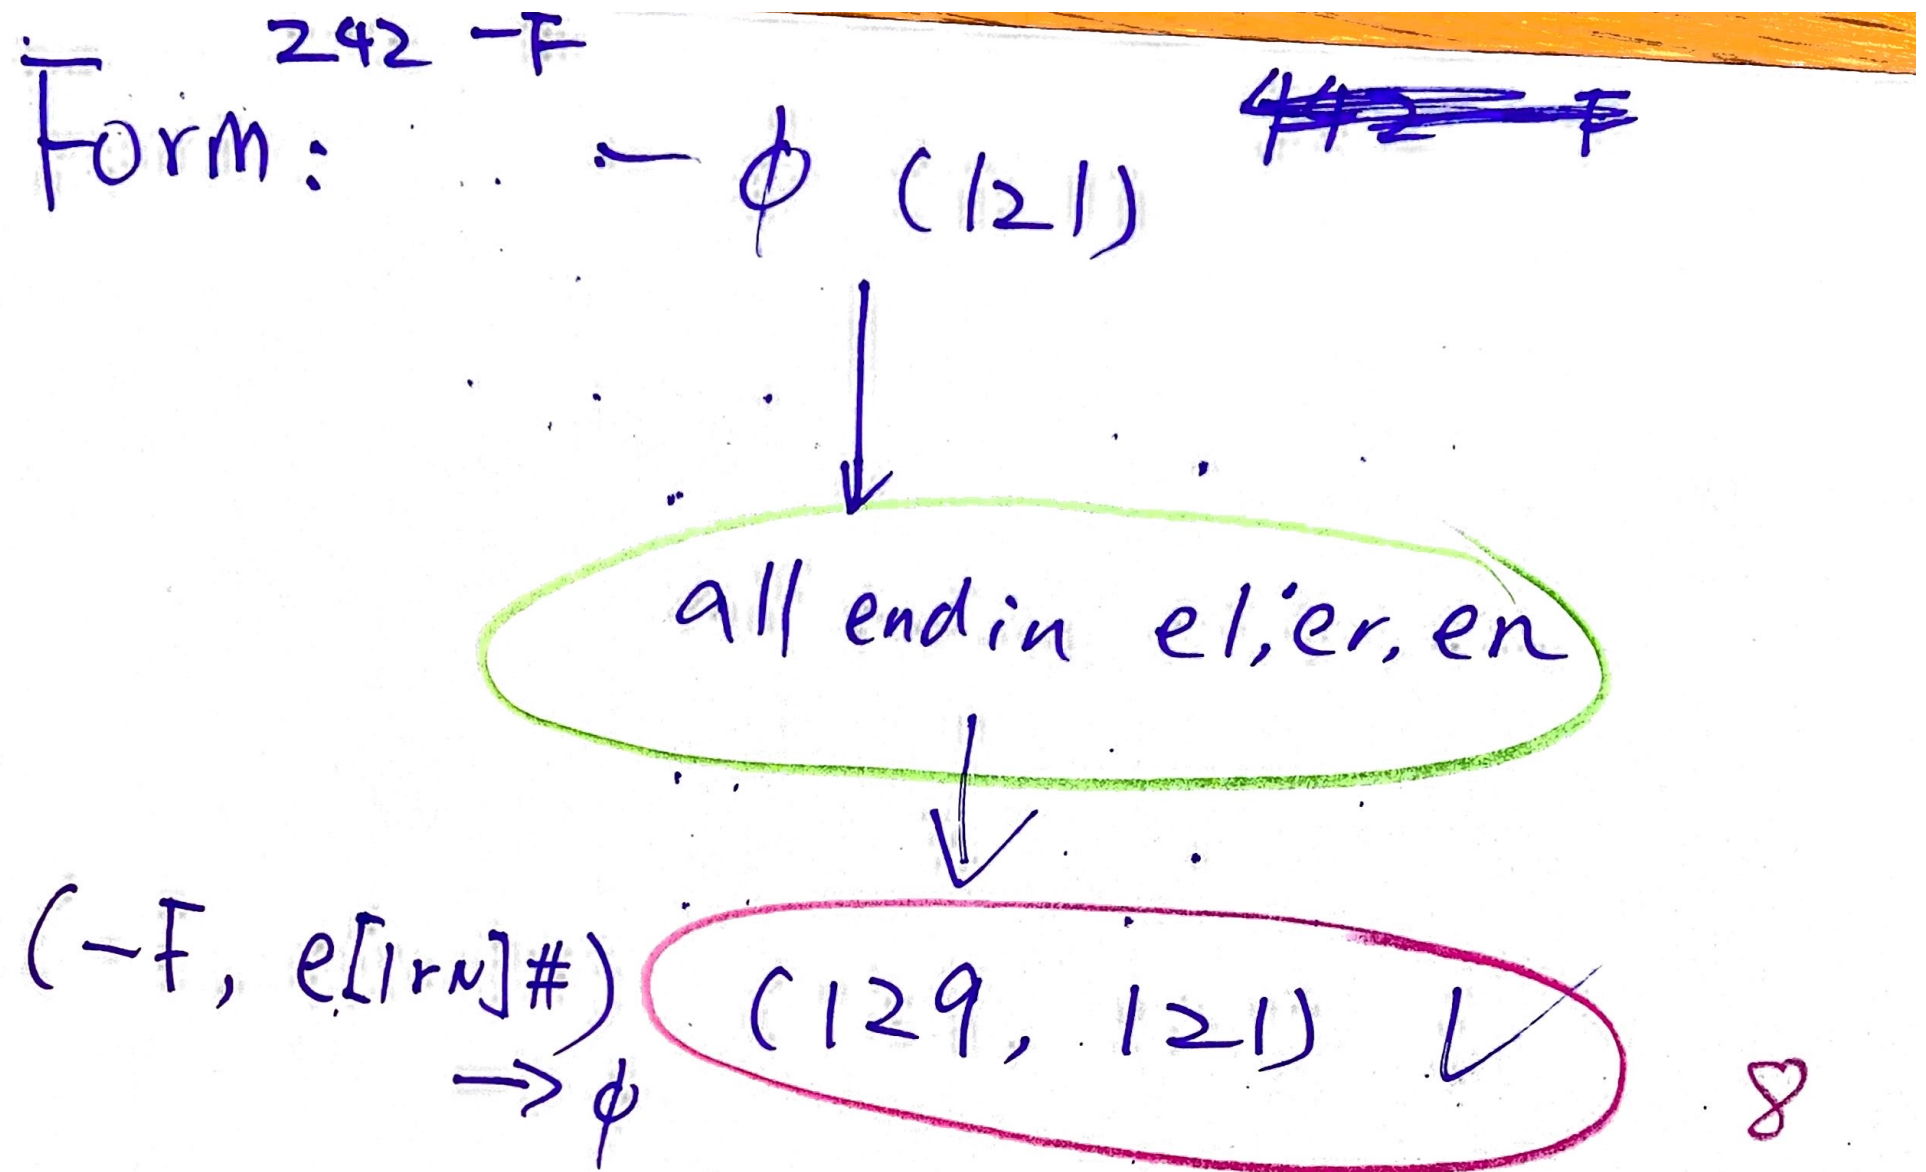 242 -F
Form: - ϕ (121)
all end in el, er, en
(-F, e[lrN]#) (129, 121) ✓
→ ϕ 8